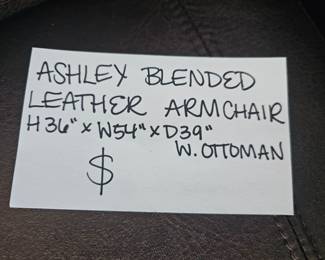 ASHLEY BLENDED
LEATHER ARMCHAIR
H36"xW54"xD39"
W. OTTOMAN
$